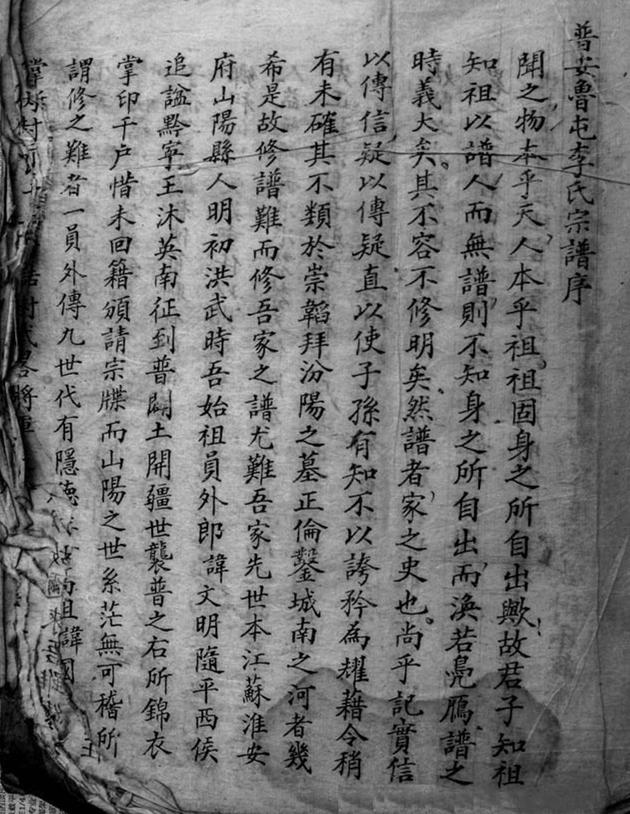 普安魯屯李氏宗譜序
聞之物本乎天人本乎祖祖固身之所自出歟故君子知祖
知祖以譜人而無譜則不知身之所自出而渙若鳧鴈譜之
時義大矣其不容不修明矣然譜者家之史也尚乎記實信
以傳信疑以傳疑直以使子孫有知不以誇矜為耀藉令稍
有未確其不類於崇韜拜汾陽之墓正倫鑿城南之河者幾
希是故修譜難而修吾家之譜尤難吾家先世本江蘇淮安
府山陽縣人明初洪武時吾始祖員外郎諱文明隨平西侯
追謚黔寧王沐英南征到普闢土開疆世襲普之右所錦衣
掌印千户惜未回籍頒請宗牒而山陽之世系茫無可稽所
謂修之難者一員外傳九世代有隱德 祖諱國